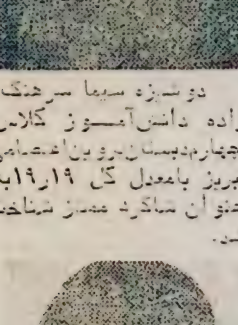 دوشیزه سیما سرهنگ
زاده دانش‌آموز کلاس
چهارم‌دبستان‌پروین‌اعتصامی
تبریز بامعدل کل ۱۹ر۱۹به
عنوان شاگرد ممتاز شناخته
شد.